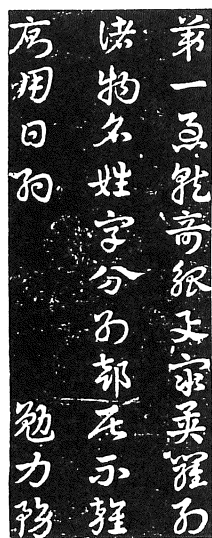 第一急就奇觚與眾異羅列
諸物名姓字分別部居不雜
廁用日約勉力務